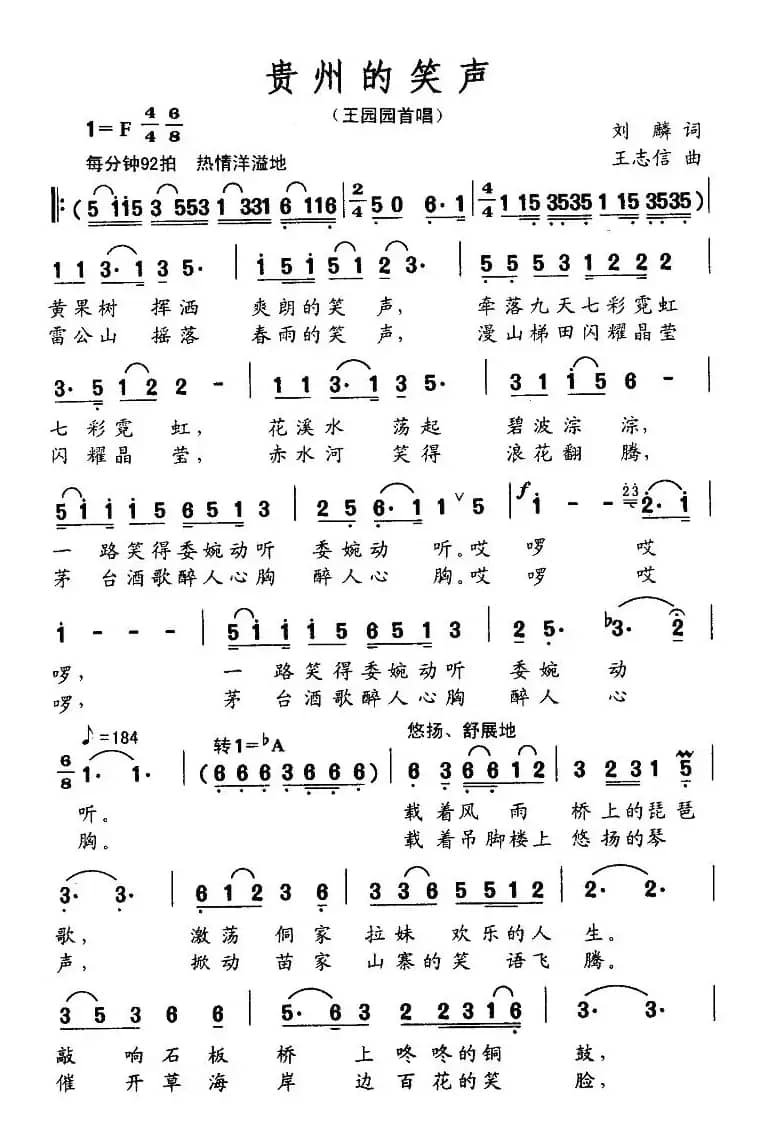 贵州的笑声
（王园园首唱）
1=F 4/4 6/8
刘麟 词
每分钟92拍 热情洋溢地
王志信 曲
‖: (5 1115 3 5553 1 3331 6 1116 | 2/4 5 0 6·1 | 4/4 1 15 3535 1 15 3535)
1 1 3·1 3 5· | 1 5 1 5 1 2 3· | 5 5 5 3 1 2 2 2
黄果树 挥洒 爽朗的笑 声， 牵落九天七彩霓虹
雷公山 摇落 春雨的笑 声， 漫山梯田闪耀晶莹
3·5 1 2 2 - | 1 1 3·1 3 5· | 3 1 1 5 6 -
七彩霓 虹， 花溪水 荡起 碧波淙 淙，
闪耀晶 莹， 赤水河 笑得 浪花翻 腾，
5 1 1 1 5 6 5 1 3 | 2 5 6·1 1 ∨ 5 | f 1 - - 23 2·1
一 路笑得委婉动听 委婉动 听。哎 啰 哎
茅 台酒歌醉人心胸 醉人心 胸。哎 啰 哎
1 - - - | 5 1 1 1 5 6 5 1 3 | 2 5· ♭3· 2
啰， 一 路笑得委婉动听 委婉 动
啰， 茅 台酒歌醉人心胸 醉人 心
♪=184 转1=♭A 悠扬、舒展地
6/8 1· 1· | (6 6 6 3 6 6 6 6) | 6 3 6 6 1 2 | 3 2 3 1 5
听。 载着风 雨 桥上的琵琶
胸。 载着吊脚楼上 悠扬的琴
3· 3· | 6 1 2 3 6 | 3 3 6 5 5 1 2 | 2· 2·
歌， 激荡 侗家 拉妹 欢乐的人 生。
声， 掀动 苗家 山寨的笑 语飞 腾。
3 5 3 6 6 | 5· 6 3 2 2 3 1 6 | 3· 3·
敲 响石板 桥 上 咚咚的铜 鼓，
催 开草海 岸 边 百花的笑 脸，